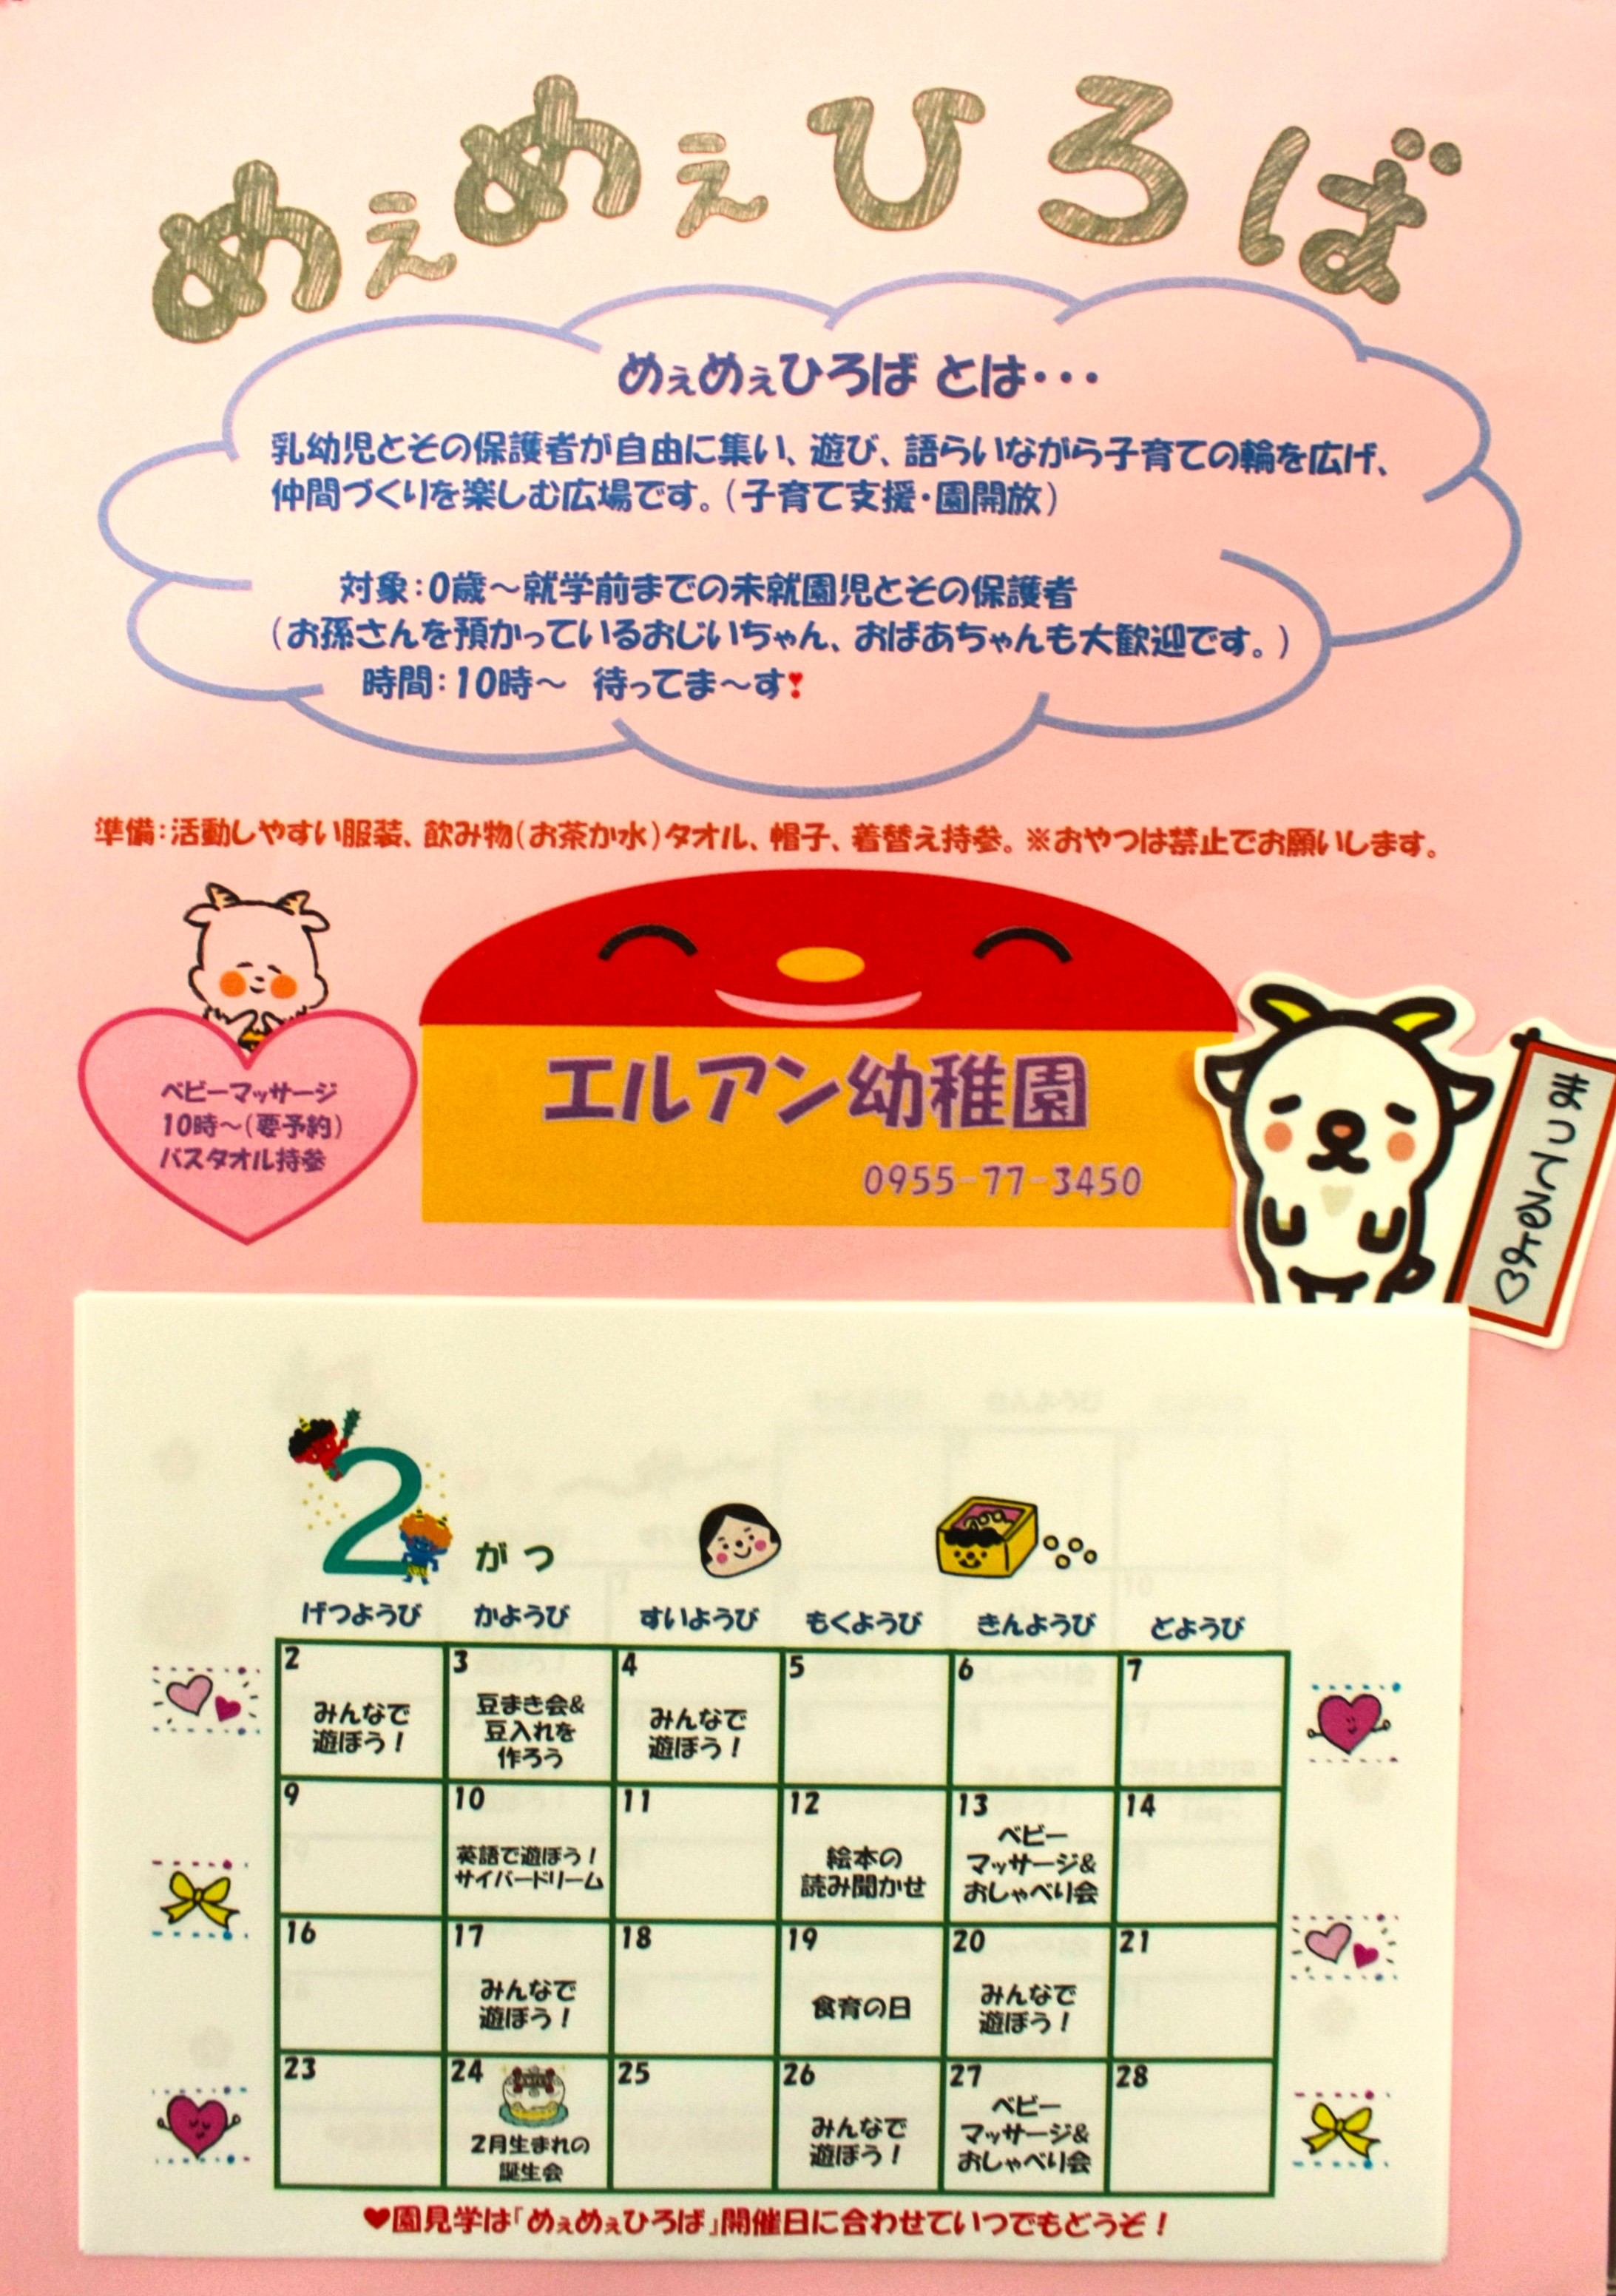 めぇめぇひろば
めぇめぇひろば とは・・・
乳幼児とその保護者が自由に集い、遊び、語らいながら子育ての輪を広げ、
仲間づくりを楽しむ広場です。(子育て支援・園開放)
対象:0歳～就学前までの未就園児とその保護者
(お孫さんを預かっているおじいちゃん、おばあちゃんも大歓迎です。)
時間:10時～ 待ってま～す❣
準備:活動しやすい服装、飲み物(お茶か水)タオル、帽子、着替え持参。※おやつは禁止でお願いします。
ベビーマッサージ
10時～(要予約)
バスタオル持参
エルアン幼稚園
0955-77-3450
まってるよ♡
2がつ
げつようび かようび すいようび もくようび きんようび どようび
2
みんなで
遊ぼう！
3
豆まき会&
豆入れを
作ろう
4
みんなで
遊ぼう！
5
6
7
9
10
英語で遊ぼう！
サイバードリーム
11
12
絵本の
読み聞かせ
13
ベビー
マッサージ&
おしゃべり会
14
16
17
みんなで
遊ぼう！
18
19
食育の日
20
みんなで
遊ぼう！
21
23
24
2月生まれの
誕生会
25
26
みんなで
遊ぼう！
27
ベビー
マッサージ&
おしゃべり会
28
♥園見学は「めぇめぇひろば」開催日に合わせていつでもどうぞ！